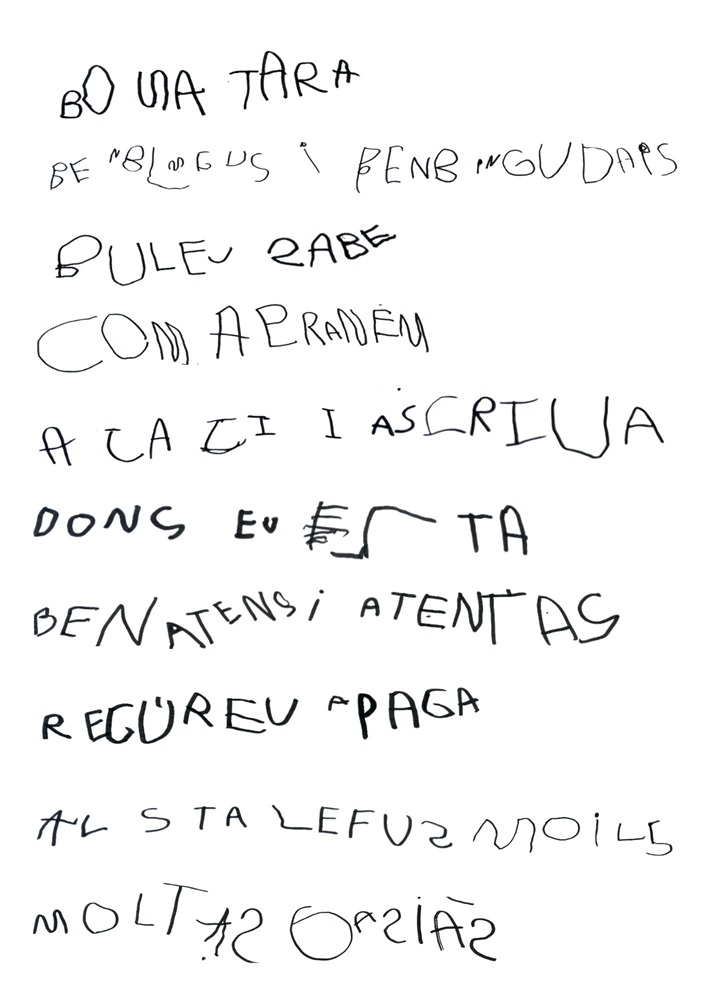 BONA TARA
BENBINGUS I BENBINGUDAIS
BULEU SABE
COM APRANEM
A LAGI I ASCRIUA
DONS EU ESTA
BEN ATENS I ATENTAS
RECUREU APAGA
AL S TALEFUS MOILS
MOLTAS GRASIAS